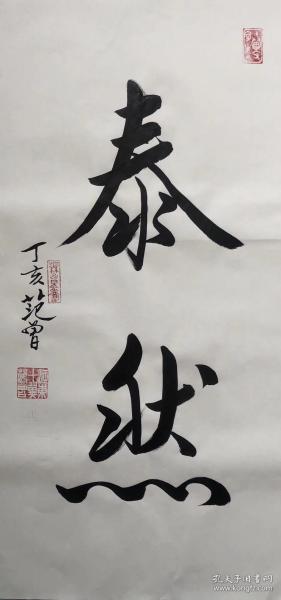 泰然
丁亥 范曾
孔夫子旧书网
www.kongfz.com